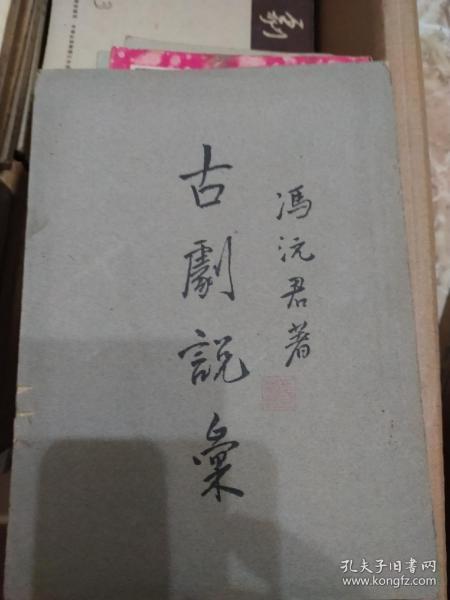 古劇説彙
馮沅君著
孔夫子旧书网
www.kongfz.com